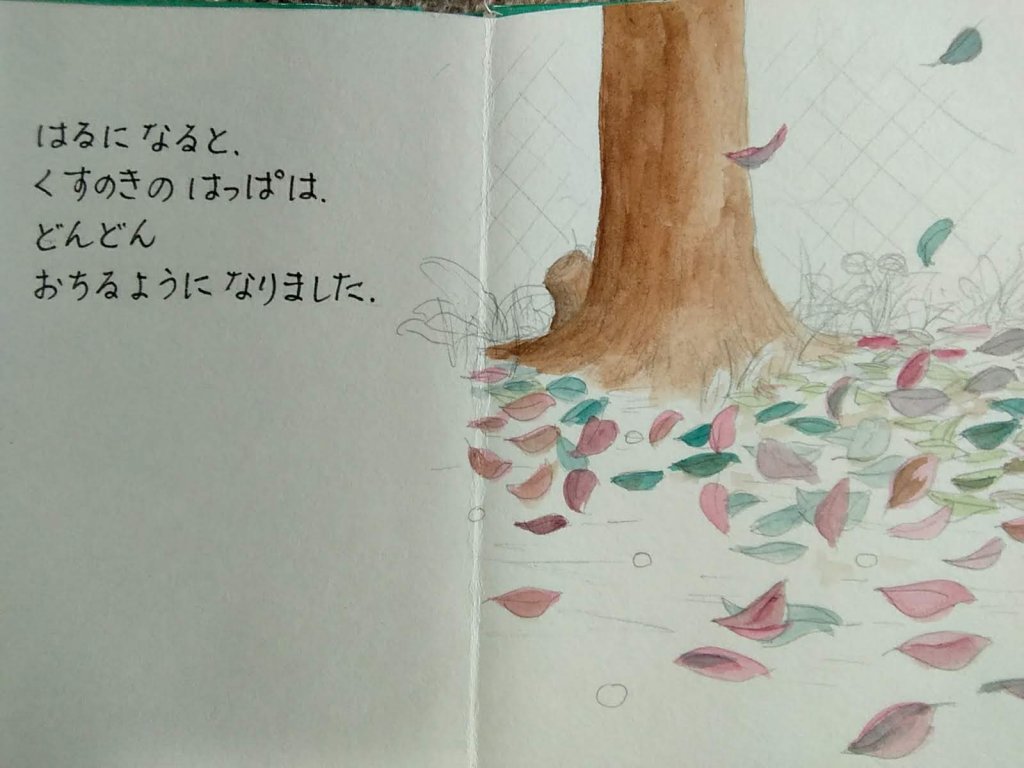 はるに なると、
くすのきの はっぱは、
どんどん
おちるように なりました.